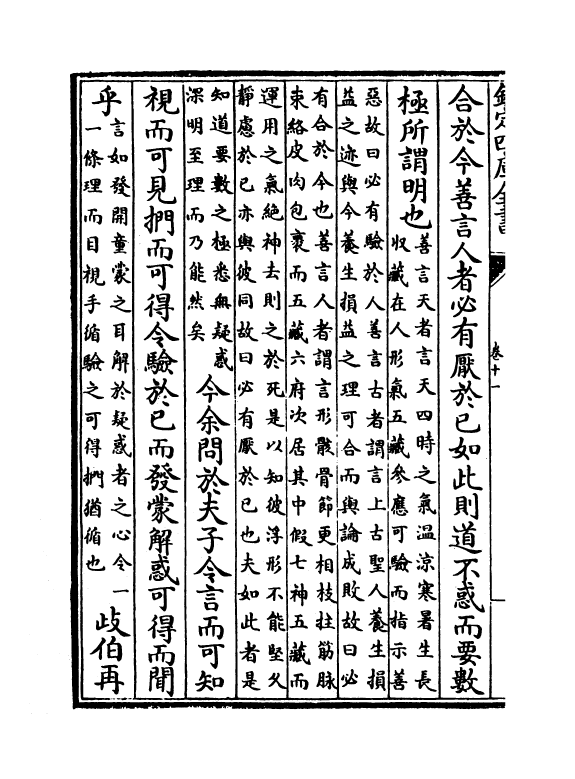 欽定四庫全書
卷十一
合於今善言人者必有厭於已如此則道不惑而要數
極所謂明也
善言天者言天四時之氣温涼寒暑生長
収藏在人形氣五藏參應可驗而指示善
惡故曰必有驗於人善言古者謂言上古聖人養生損
益之迹與今養生損益之理可合而與論成敗故曰必
有合於今也善言人者謂言形骸骨節更相枝拄筋脉
束絡皮肉包裹而五藏六府次居其中假七神五藏而
運用之氣絶神去則之於死是以知彼浮形不能堅久
靜慮於已亦與彼同故曰必有厭於已也夫如此者是
知道要數之極悉無疑惑
深明至理而乃能然矣
今余問於夫子令言而可知
視而可見捫而可得令驗於已而發蒙解惑可得而聞
乎
言如發開童蒙之耳解於疑惑者之心令一
一條理而目視手循驗之可得捫猶循也
歧伯再